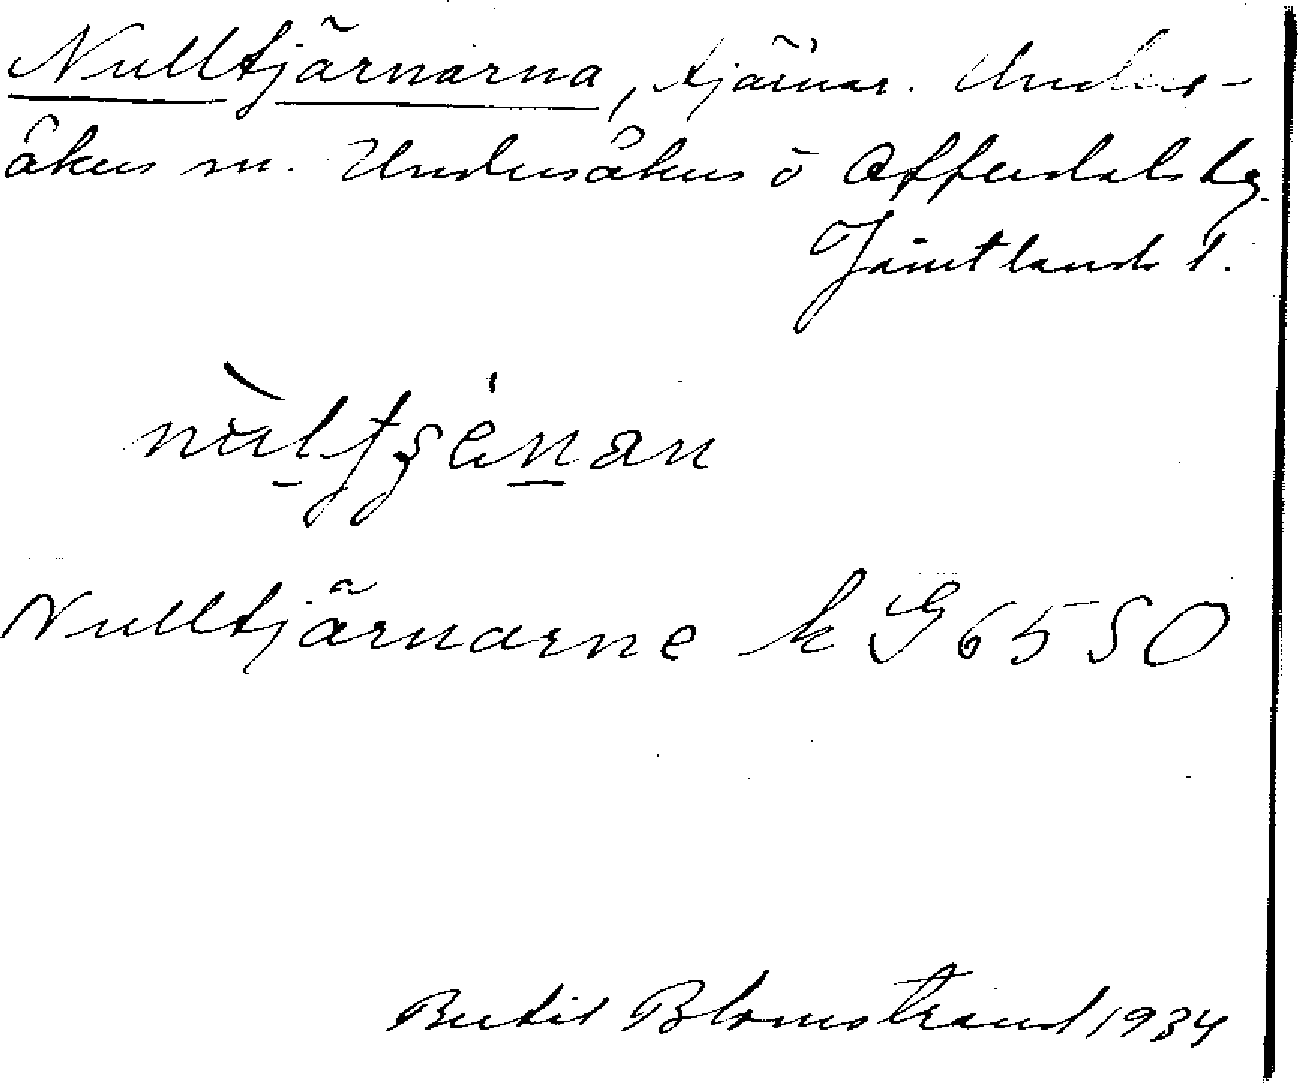 Nulltjärnarna, tjärnar. Unders-
åkers sn. Undersåkers o Offerdals tg.
Jämtlands l.
Nulltjärnarne k G6550
Bertil Blomstrand 1934